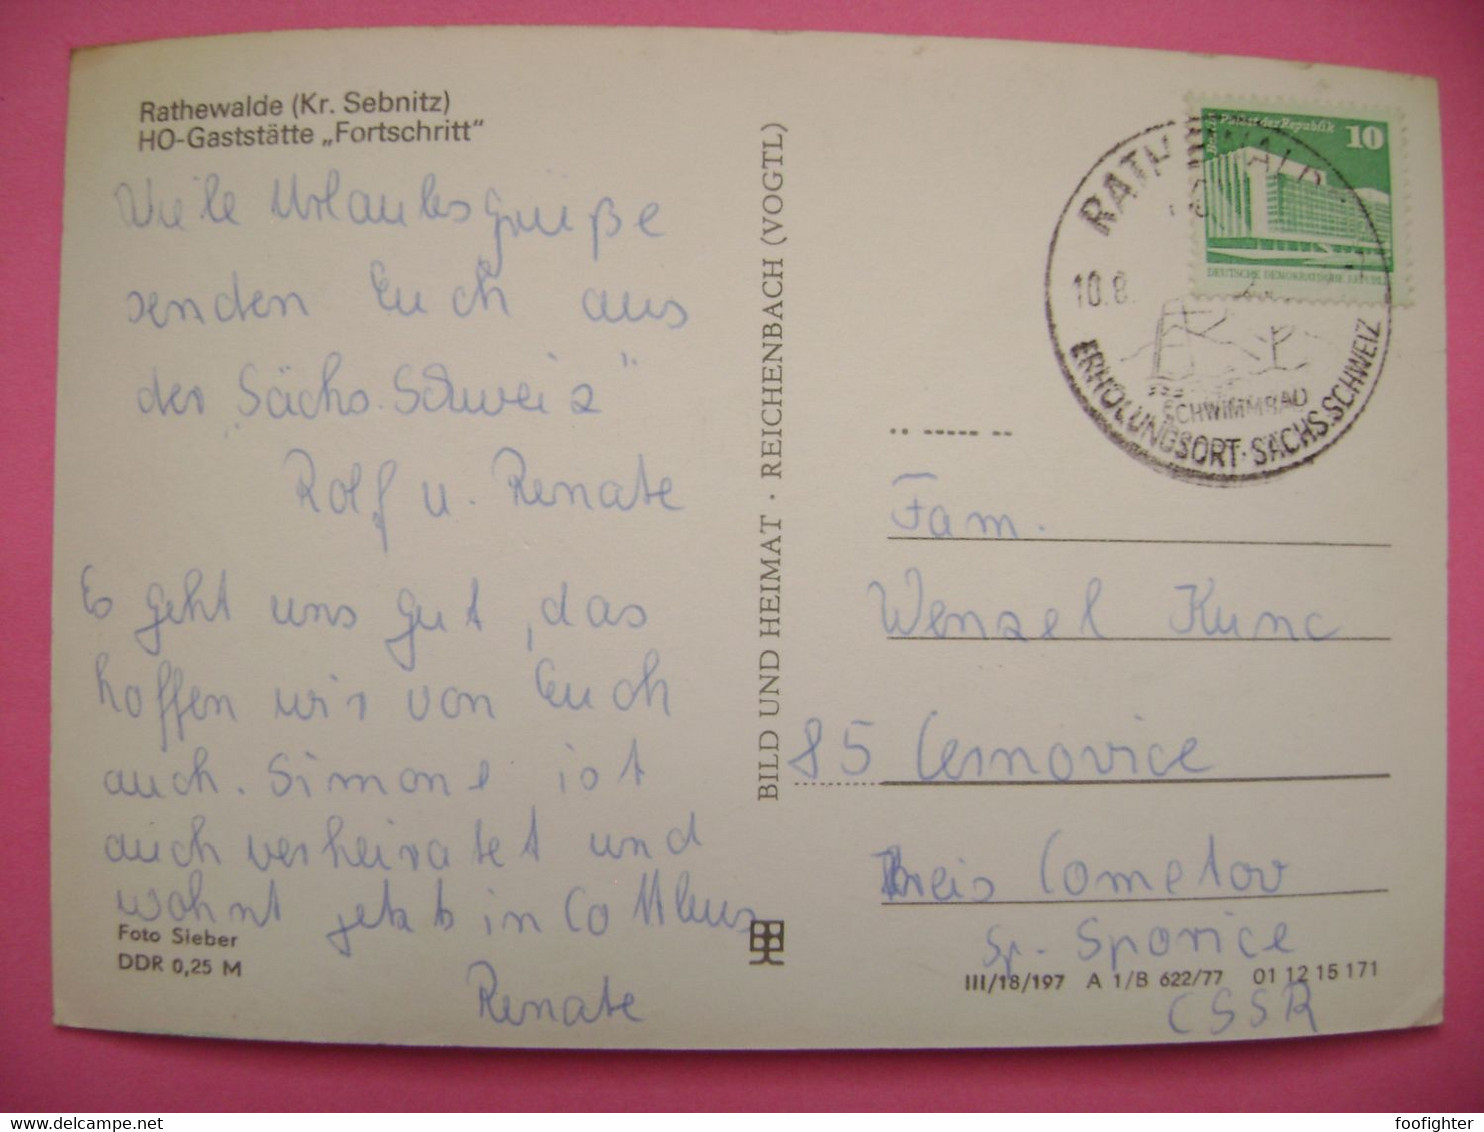 Rathewalde (Kr. Sebnitz)
HO-Gaststätte „Fortschritt"
Viele Urlaubsgrüße
senden Euch aus
der „Sächs. Schweiz"
Rolf u. Renate
Es geht uns gut, das
hoffen wir von Euch
auch. Simone ist
auch verheiratet und
wohnt jetzt in Cottbus
Renate
Foto Sieber
DDR 0,25 M
BILD UND HEIMAT · REICHENBACH (VOGTL)
der Republik 10
DEUTSCHE DEMOKRATISCHE
10.8.
SCHWIMMBAD
ERHOLUNGSORT · SÄCHS. SCHWEIZ
Fam.
Wenzel Kunc
85 Cernovice
Kreis Cometov
Sp. Sporice
III/18/197 A 1/B 622/77 01 12 15 171
CSSR
foofighter
delcampe.net